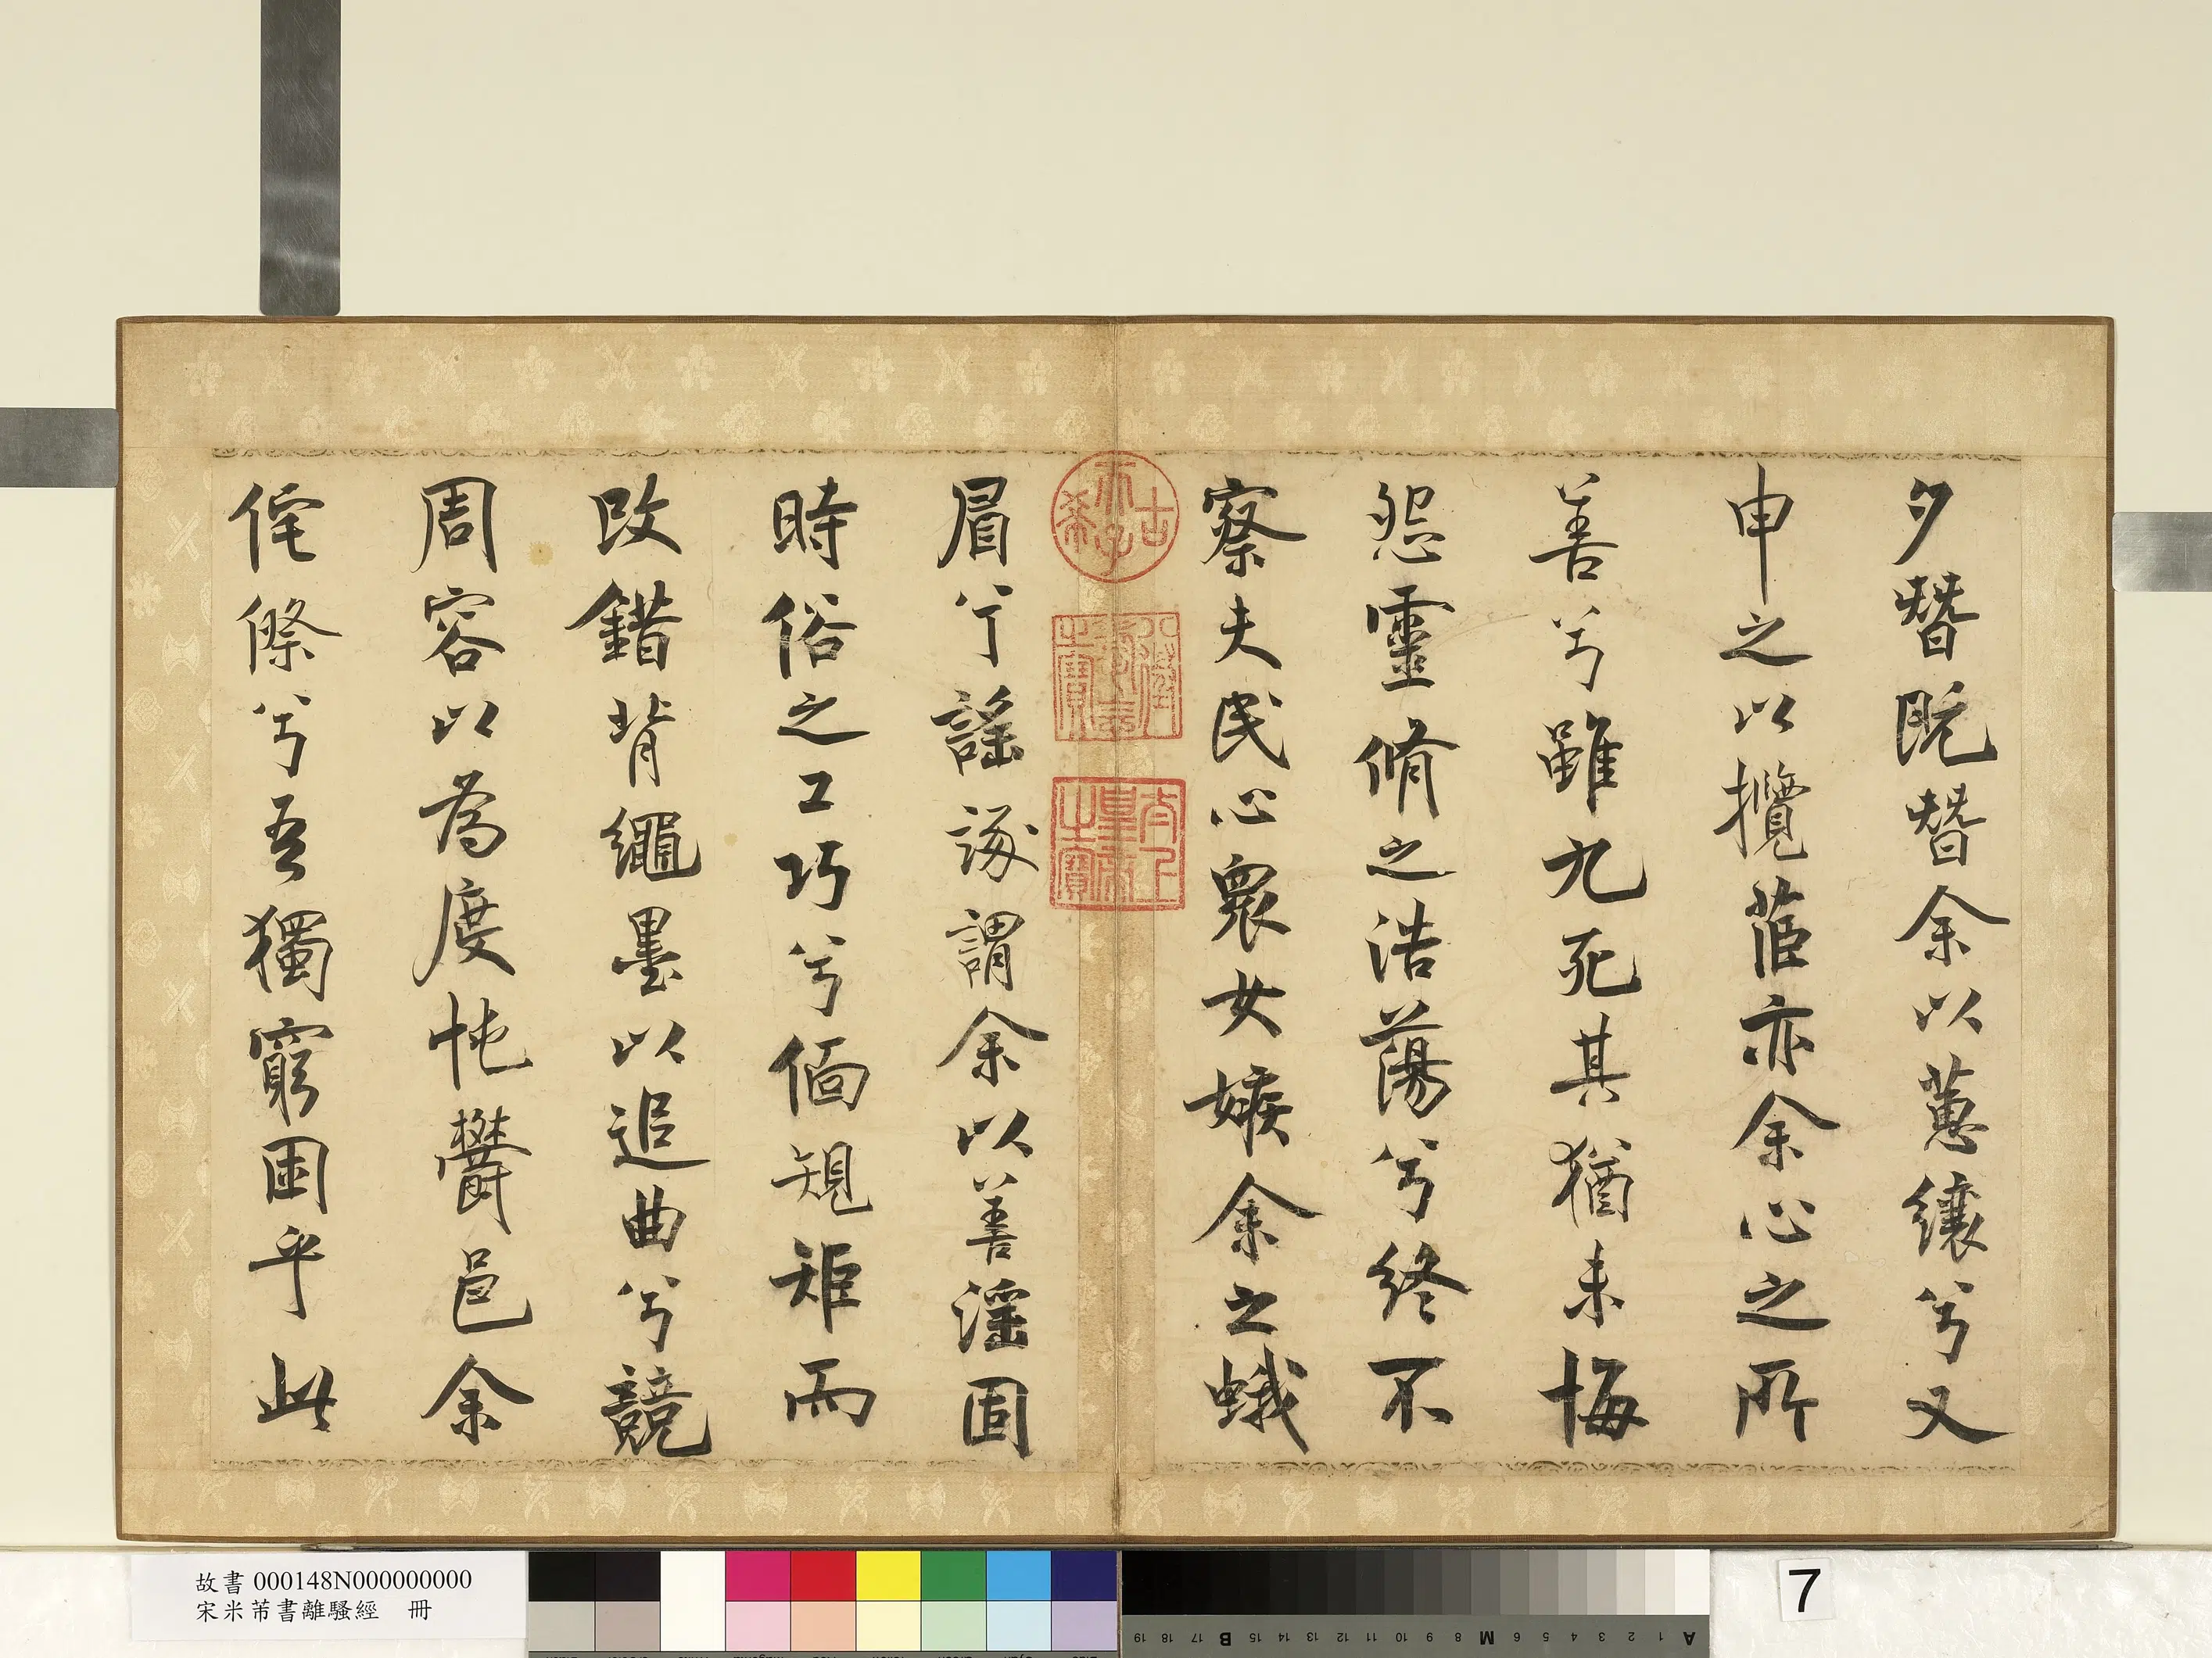 夕朁既朁余以蕙纕兮又
申之以攬茞亦余心之所
善兮雖九死其猶未悔
怨靈脩之浩蕩兮終不
察夫民心衆女嫉余之蛾
眉兮謡諑謂余以善淫固
時俗之工巧兮偭規矩而
改錯背繩墨以追曲兮競
周容以為度忳欝邑余
侘傺兮吾獨窮困乎此
古希天子
八徵耄念之寶
太上皇帝之寶
故書 000148N000000000
宋米芾書離騷經 冊
7
A 1 2 3 4 5 6 M 8 9 10 11 12 13 14 15 B 17 18 19